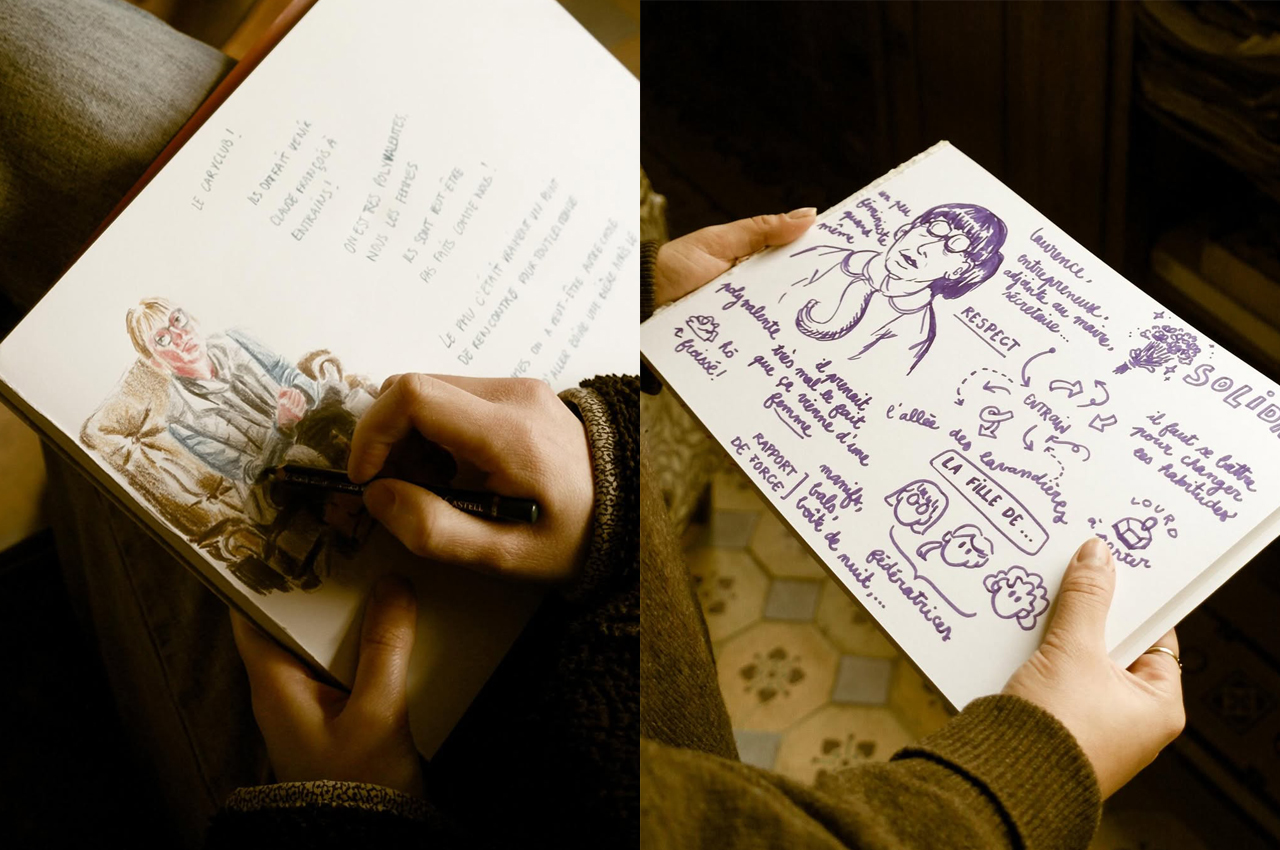 LE CARYCLUB !
ILS ONT FAIT VENIR
CLAUDE FRANÇOIS À
ENTRAINS !
ON EST TRÈS POLYVALENTES.
NOUS LES FEMMES
ILS SONT PEUT-ÊTRE
PAS FAITS COMME NOUS !
LE PMU C'ÉTAIT VRAIMENT UN POINT
DE RENCONTRE POUR TOUT LE MONDE
ON A PEUT-ÊTRE AUTRE CHOSE
ALLER BOIRE UNE BIÈRE
CASTELL
un peu
féministe
quand
même
Laurence,
entrepreneuse,
adjointe au maire,
secrétaire...
RESPECT
polyvalente
hi
froissé !
très mal
il prenait
le fait
que ça vienne d'une
femme
SOLID
ENTRAIN
il faut se battre
pour changer
ces habitudes
l'allée des lavandières
LA FILLE DE...
RAPPORT
DE FORCE
manifs,
bals,
boîte de nuit,...
fédératrices
LOURD
à